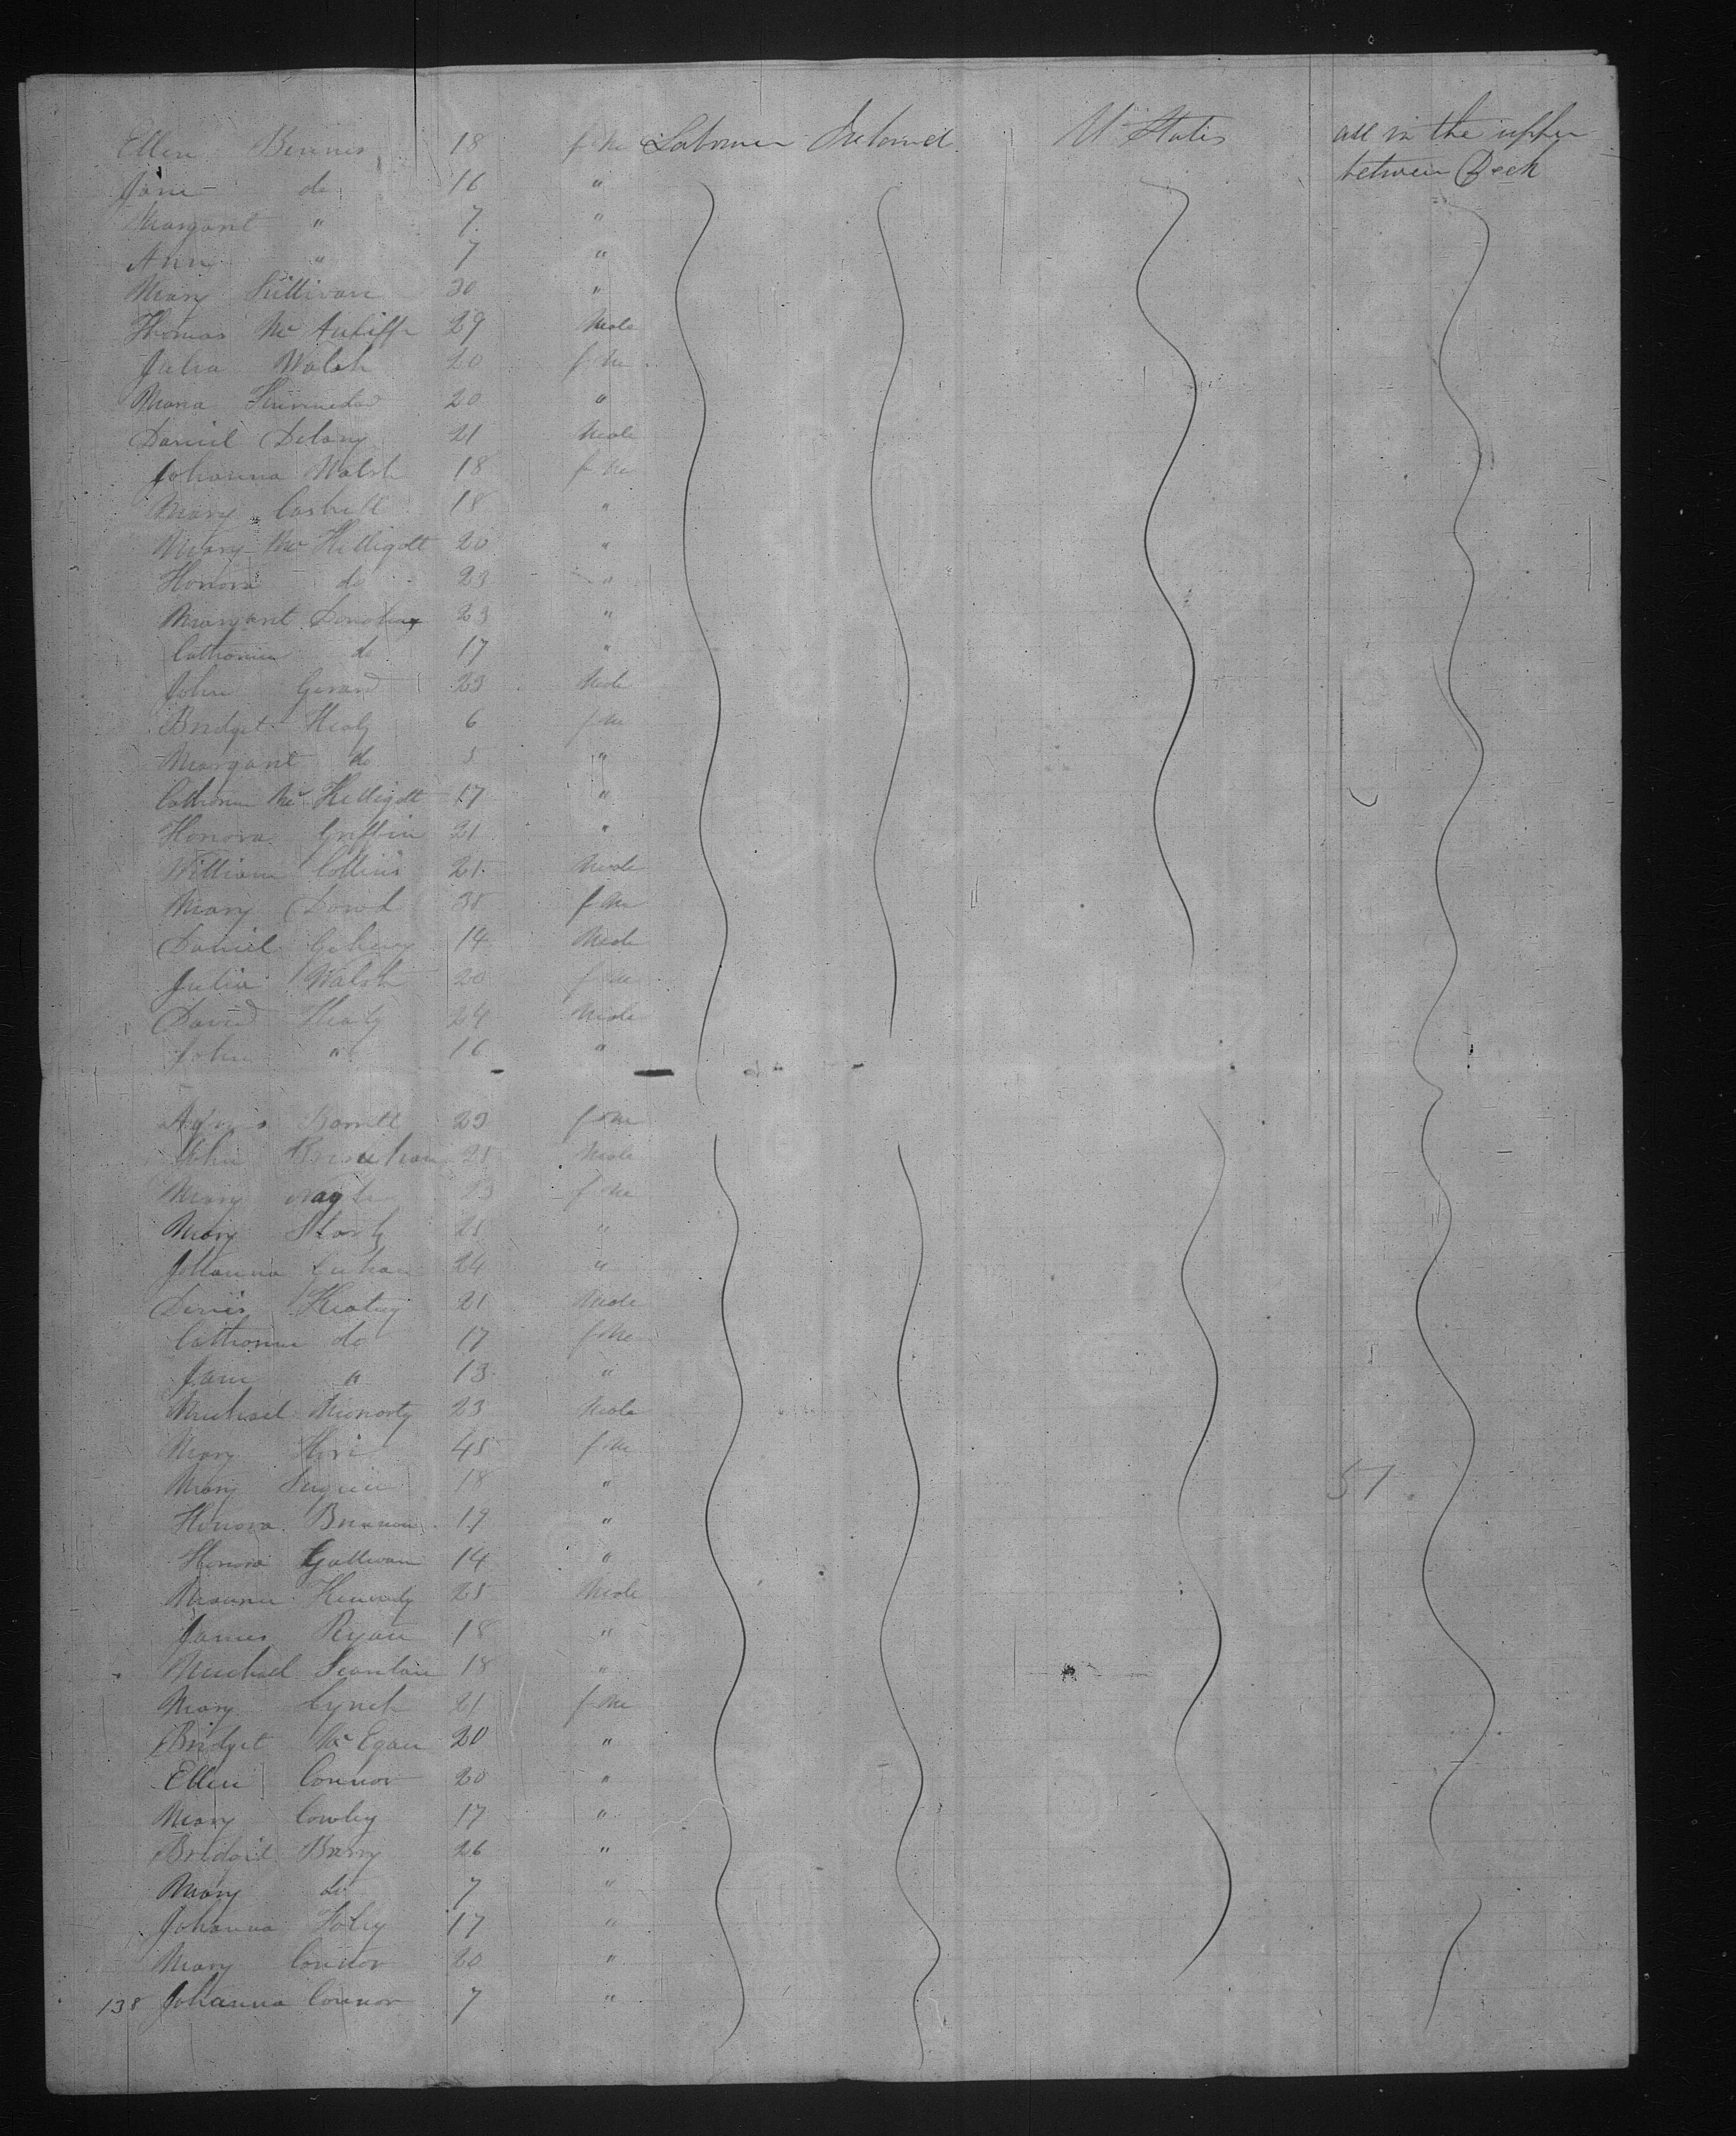 Ellen Bennis 18 f Me Labourer Ireland U States all in the upper
Jane do 16 " between Deck
Margaret " 7 "
Ann " 7 "
Mary Sullivan 30 "
Thomas Mc Auliffe 29 Male
Julia Walsh 20 f Me
Maria 20 "
Daniel Delany 21 Male
Johanna Walsh 18 f Me
Mary Cashell 18 "
Mary Mc Killigott 20 "
Honora do 23 "
Margaret 23 "
Catherine do 17 "
John Gerard 23 Male
Bridget Healy 6 f Me
Margaret do 5 "
Catherine Mc Killigott 17 "
Honora Griffin 21 "
William Collins 21 Male
Mary Dowd 35 f Me
Daniel 14 Male
Julia Walsh 20 f Me
David Healy 24 Male
John " 16 "
Agnes 23 f Me
John 25 Male
Mary f Me
Mary 25 "
Johanna 24 "
Denis Keating 21 Male
Catherine do 17 f Me
Jane " 13 "
Michael Moriarty 23 Male
Mary 45 f Me
Mary 18 " 51
Honora 19 "
Honora Gallivan 14 "
Kennedy 25 Male
James Ryan 18 "
Michael Scanlan 18 "
Mary Lynch 21 f Me
Bridget Mc Egan 20 "
Ellen Connor 20 "
Mary Cowley 17 "
Bridget Barry 26 "
Mary do 7 "
Johanna Foley 17 "
Mary Connor 20 "
138 Johanna Connor 7 "